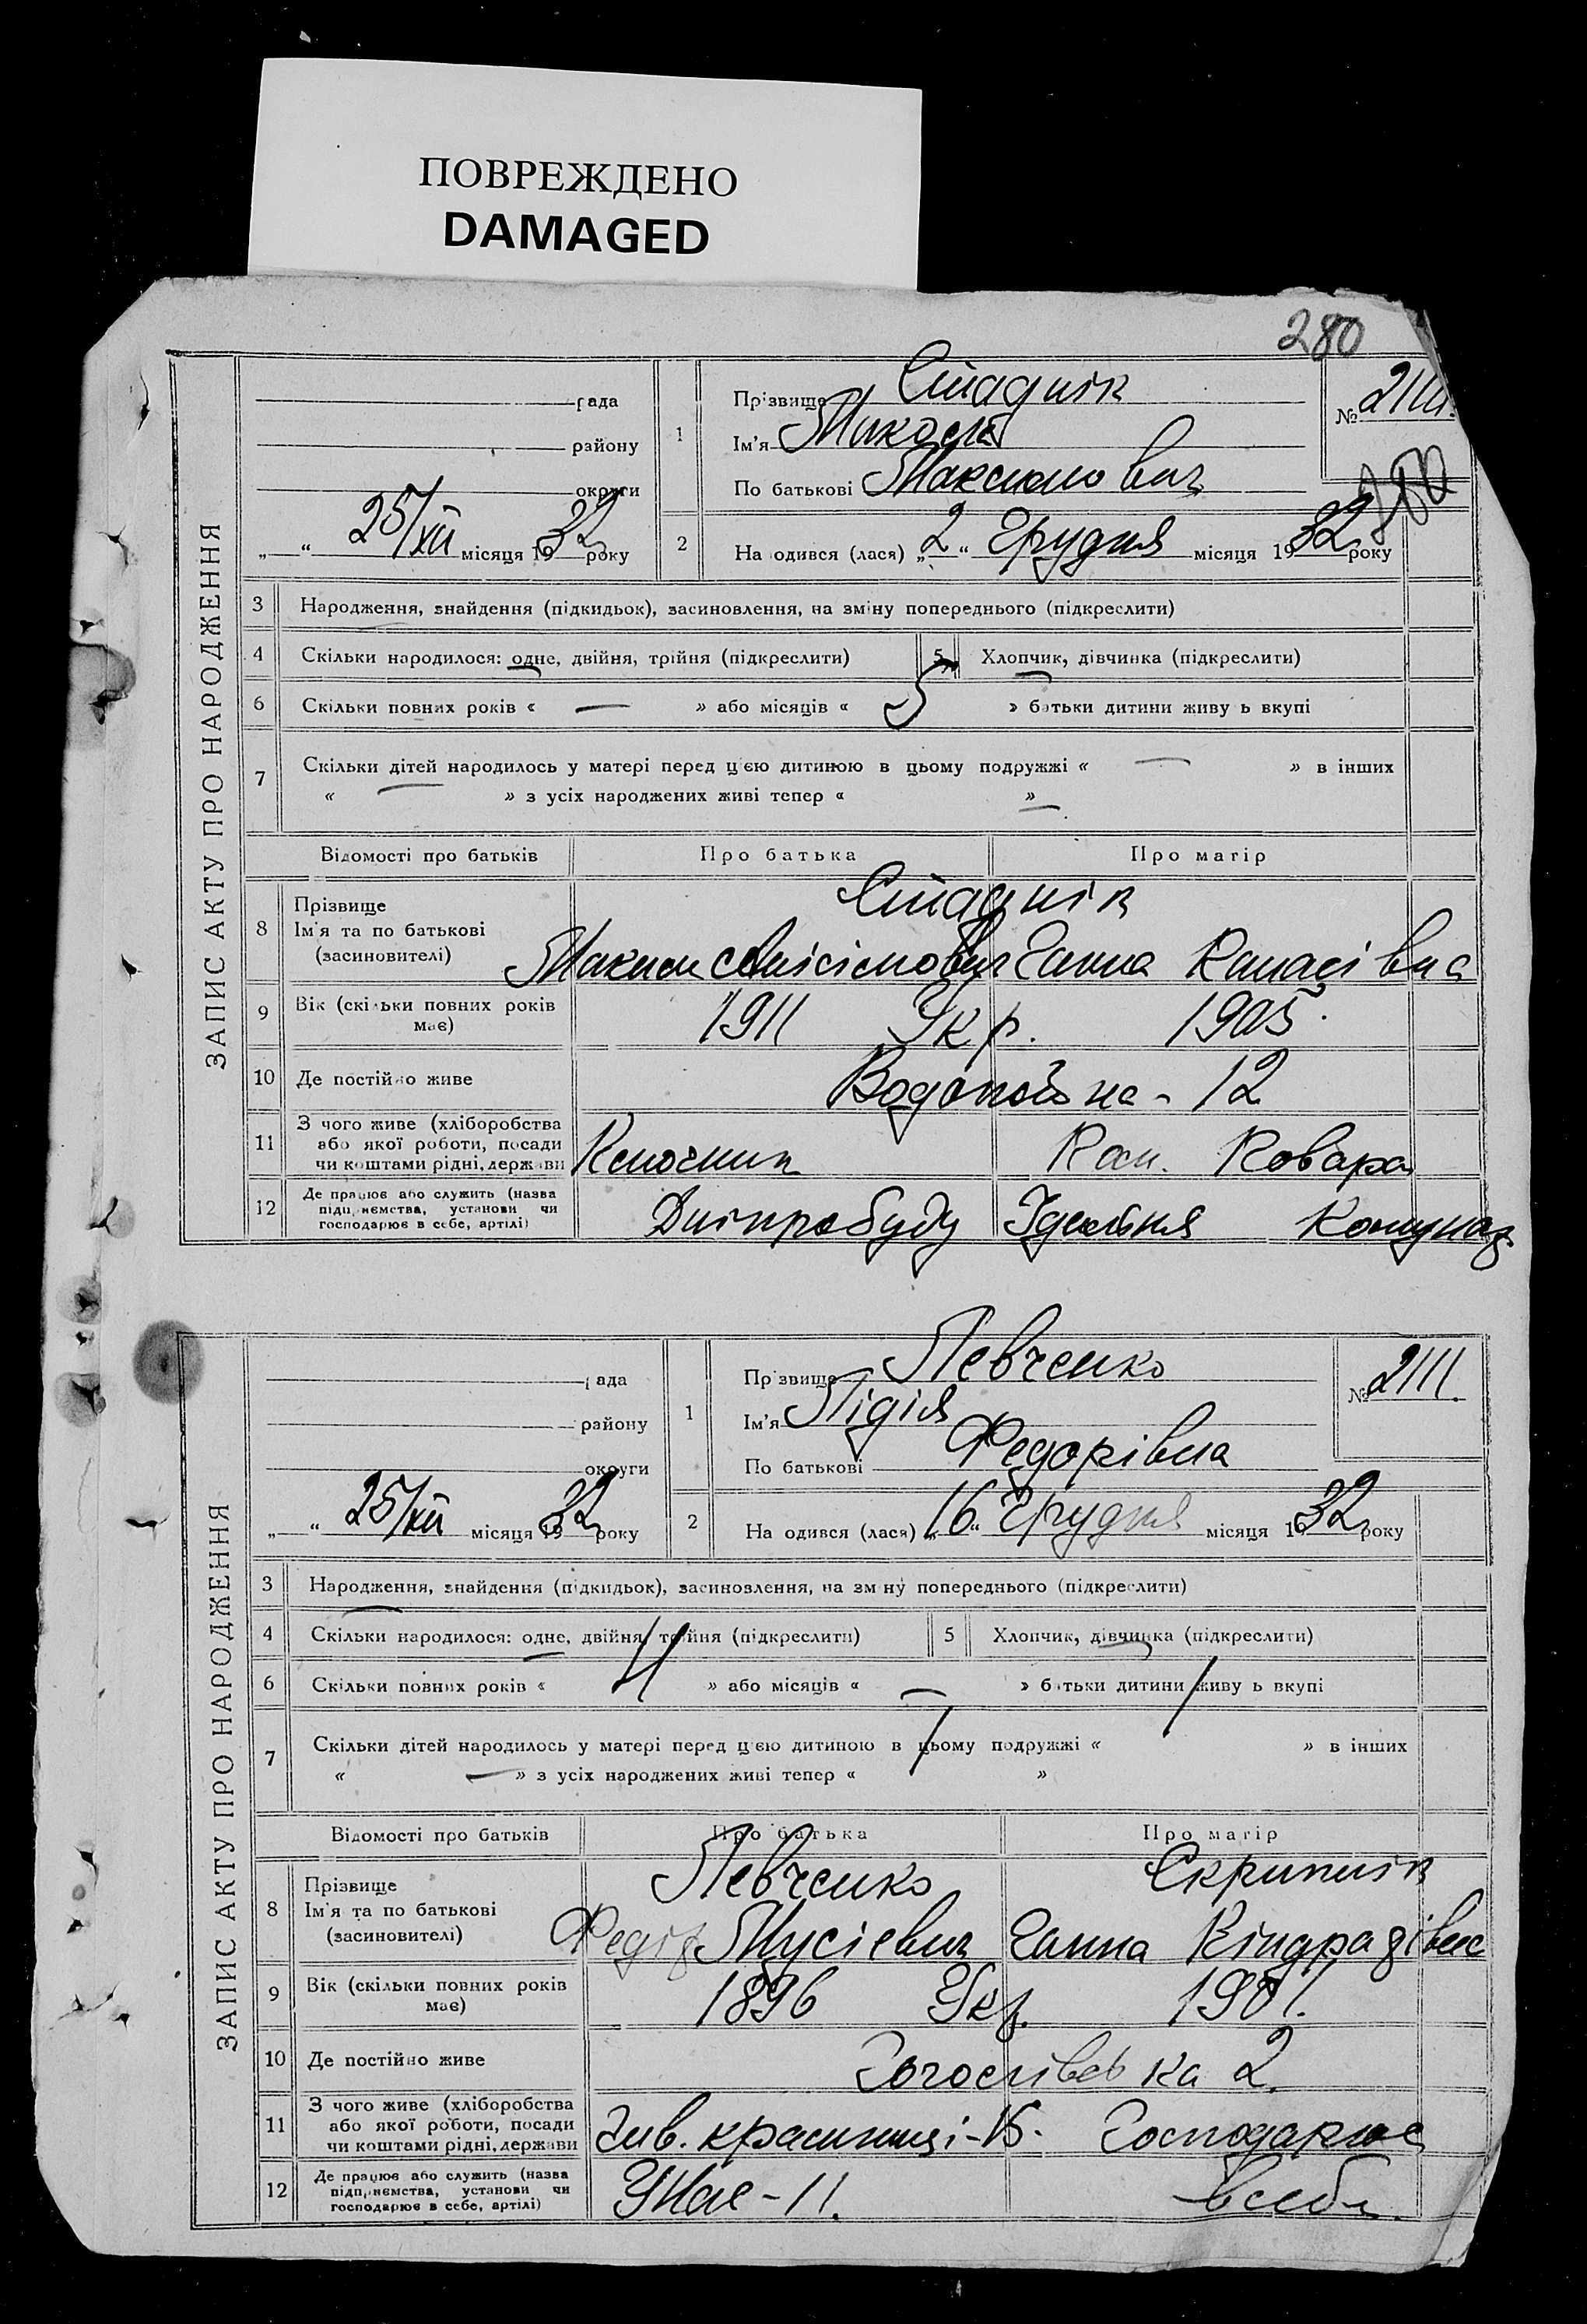 ПОВРЕЖДЕНО
DAMAGED
280
ЗАПИС АКТУ ПРО НАРОДЖЕННЯ
рада
району
округи
„ “ 25/XII місяця 1932 року
1 Прізвище Стаднік
Ім'я Микола
По батькові Максимович
№
2 На одився (лася) „2“ Грудня місяця 1932 року
3 Народження, знайдення (підкидьок), засиновлення, на зміну попереднього (підкреслити)
4 Скільки народилося: одне, двійня, трійня (підкреслити) 5 Хлопчик, дівчинка (підкреслити)
6 Скільки повних років « — » або місяців « 5 » батьки дитини живу ь вкупі
7 Скільки дітей народилось у матері перед цією дитиною в цьому подружжі « — » в інших
« — » з усіх народжених живі тепер « — »
Відомості про батьків Про батька Про матір
8 Прізвище
Ім'я та по батькові
(засиновителі)
Стаднік
Максим Анісімович Ганна
9 Вік (скільки повних років має) 1911 Укр. 1905
10 Де постійно живе Водопойна - 12
11 З чого живе (хліборобства або якої роботи, посади чи коштами рідні, держави
12 Де працює або служить (назва підприємства, установи чи господарює в себе, артілі) Дніпробуду Їдальня
ЗАПИС АКТУ ПРО НАРОДЖЕННЯ
рада
району
округи
„ “ 25/XII місяця 1932 року
1 Прізвище Левченко
Ім'я Лідія
По батькові Федорівна
№ 2111.
2 На одився (лася) „16“ Грудня місяця 1932 року
3 Народження, знайдення (підкидьок), засиновлення, на зміну попереднього (підкреслити)
4 Скільки народилося: одне, двійня, трійня (підкреслити) 5 Хлопчик, дівчинка (підкреслити)
6 Скільки повних років « » або місяців « — » батьки дитини живу ь вкупі
7 Скільки дітей народилось у матері перед цією дитиною в цьому подружжі « » в інших
« — » з усіх народжених живі тепер « »
Відомості про батьків Про батька Про матір
8 Прізвище
Ім'я та по батькові
(засиновителі)
Левченко Скрипнік
Федір Мусієвич Ганна Кіндратівна
9 Вік (скільки повних років має) 1896 Укр. 1901.
10 Де постійно живе 2.
11 З чого живе (хліборобства або якої роботи, посади чи коштами рідні, держави Господарює
12 Де працює або служить (назва підприємства, установи чи господарює в себе, артілі) в себе